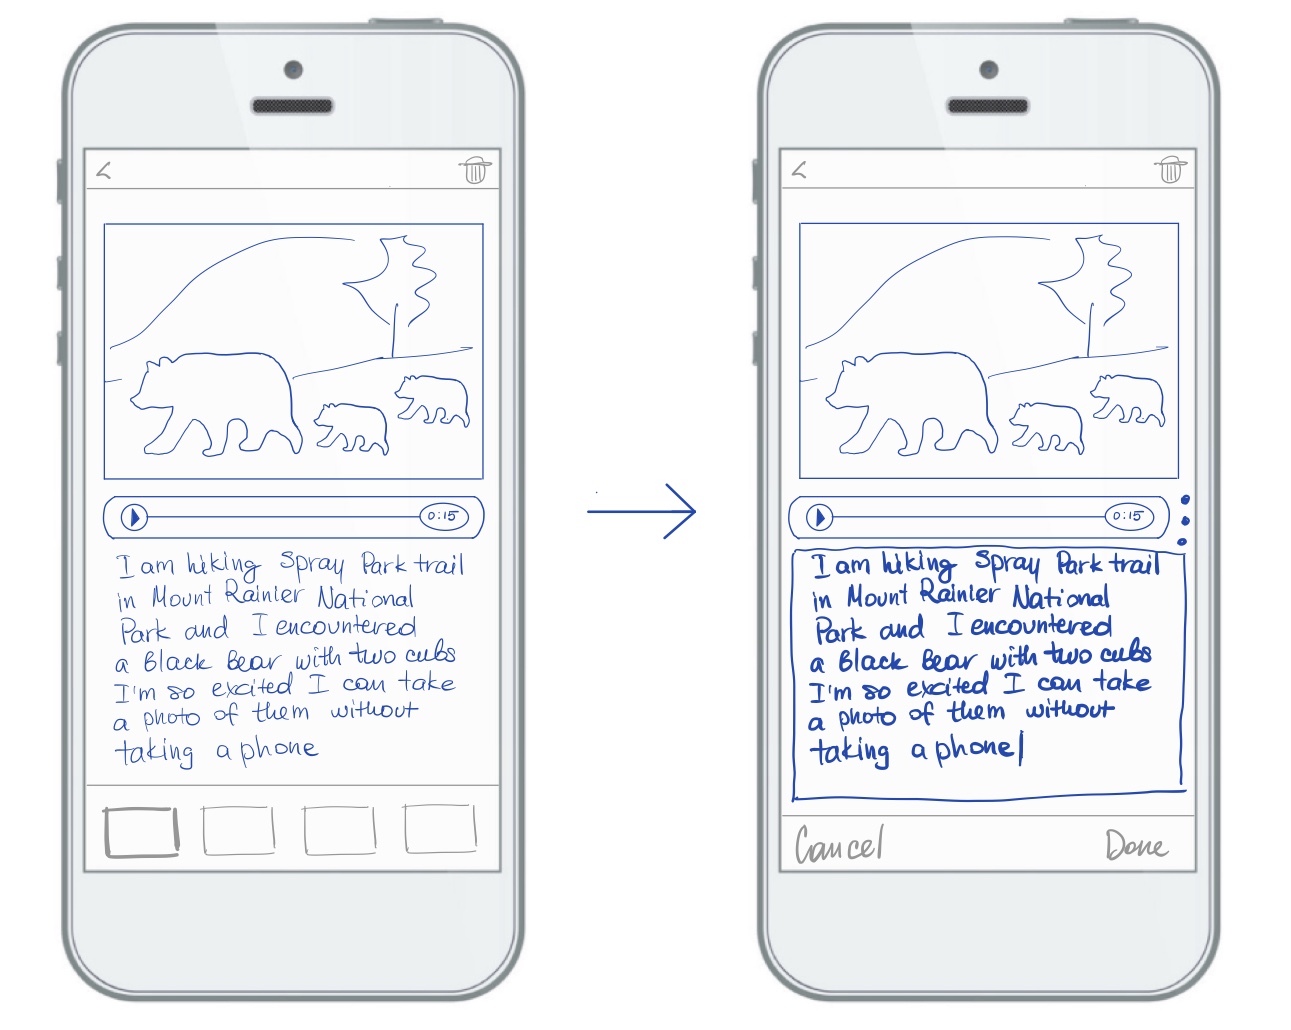 0:15
I am hiking Spray Park trail
in Mount Rainier National
Park and I encountered
a Black Bear with two cubs
I'm so excited I can take
a photo of them without
taking a phone
0:15
I am hiking Spray Park trail
in Mount Rainier National
Park and I encountered
a Black Bear with two cubs
I'm so excited I can take
a photo of them without
taking a phone
Cancel
Done